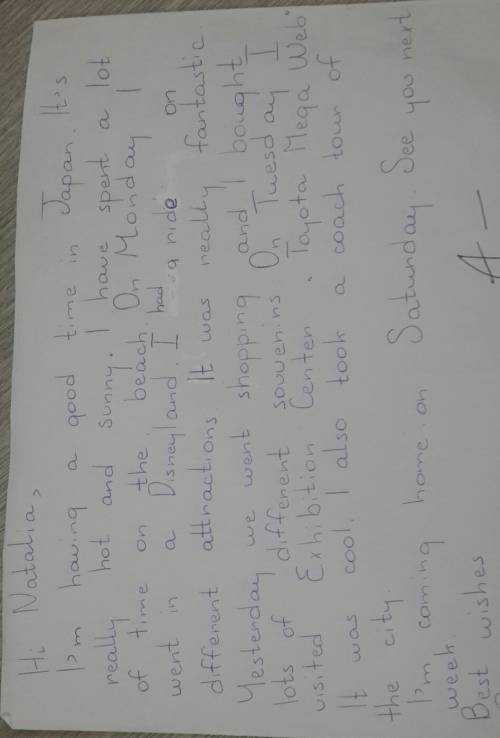 Hi Natalia,
I'm having a good time in Japan. It's
really hot and sunny. I have spent a lot
of time on the beach. On Monday I
went in a Disneyland. I had a ride on
different attractions It was really fantastic.
Yesterday we went shopping and I bought
lots of different souvenirs On Tuesday I
visited Exhibition Center. Toyota Mega Web.
It was cool. I also took a coach tour of
the city.
I'm coming home on Saturday. See you next
week.
Best wishes
A-